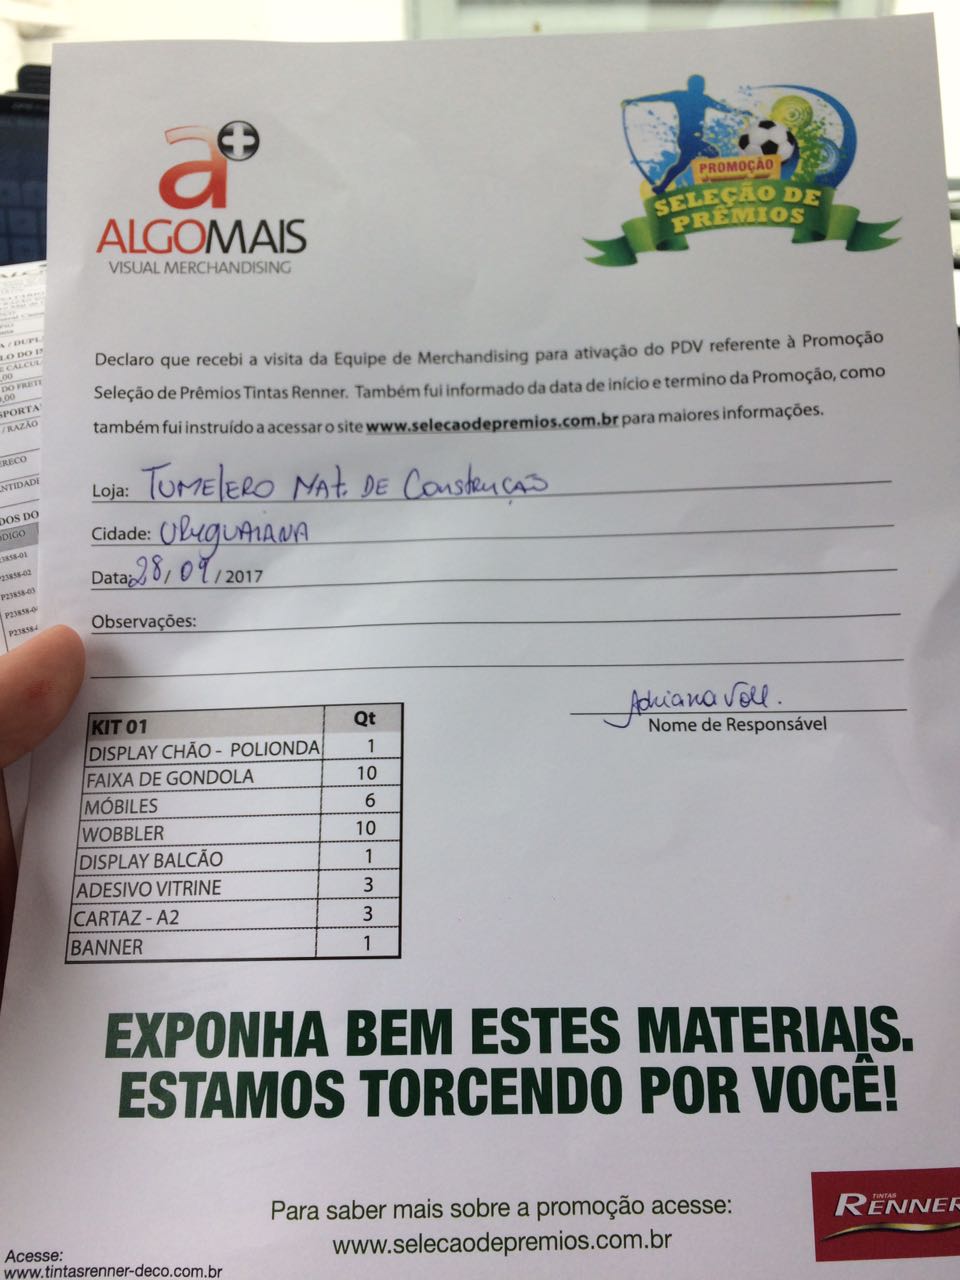 a+
ALGOMAIS
VISUAL MERCHANDISING
PROMOÇÃO
SELEÇÃO DE
PRÊMIOS
Declaro que recebi a visita da Equipe de Merchandising para ativação do PDV referente à Promoção
Seleção de Prêmios Tintas Renner. Também fui informado da data de início e termino da Promoção, como
também fui instruído a acessar o site www.selecaodepremios.com.br para maiores informações.
Loja: TUMELERO MAT. DE CONSTRUÇÃO
Cidade: URUGUAIANA
Data: 28/09/2017
Observações:
Adriana Voll.
Nome de Responsável
KIT 01 Qt
DISPLAY CHÃO - POLIONDA 1
FAIXA DE GONDOLA 10
MÓBILES 6
WOBBLER 10
DISPLAY BALCÃO 1
ADESIVO VITRINE 3
CARTAZ - A2 3
BANNER 1
EXPONHA BEM ESTES MATERIAIS.
ESTAMOS TORCENDO POR VOCÊ!
Para saber mais sobre a promoção acesse:
www.selecaodepremios.com.br
TINTAS
RENNER
Acesse:
www.tintasrenner-deco.com.br
P23858-01
P23858-02
P23858-03